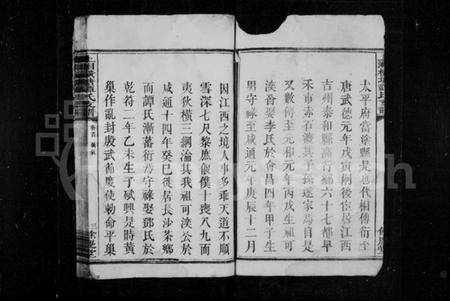 太平府當塗縣是也代相傳衍至
唐武德元年戊寅嗣後宦居江西
吉州泰和縣高行鄉六十七都早
禾市赤石
又數傳至元相元年丙戌生祖可
渙翁娶李氏於會昌四年甲子生
男守祿至咸通元年庚辰十二月
因江西之境人事多乖天道不順
雪深七尺黎庶僵僕十喪八九而
夷狄橫三綱淪其我祖可渙公於
咸通十四年癸巳徙居長沙茶鄉
而譚氏漸蕃衍焉守祿娶鄧氏於
乾符二年乙未生子賦興是時黃
巢作亂封殷武節度使勅命平巢